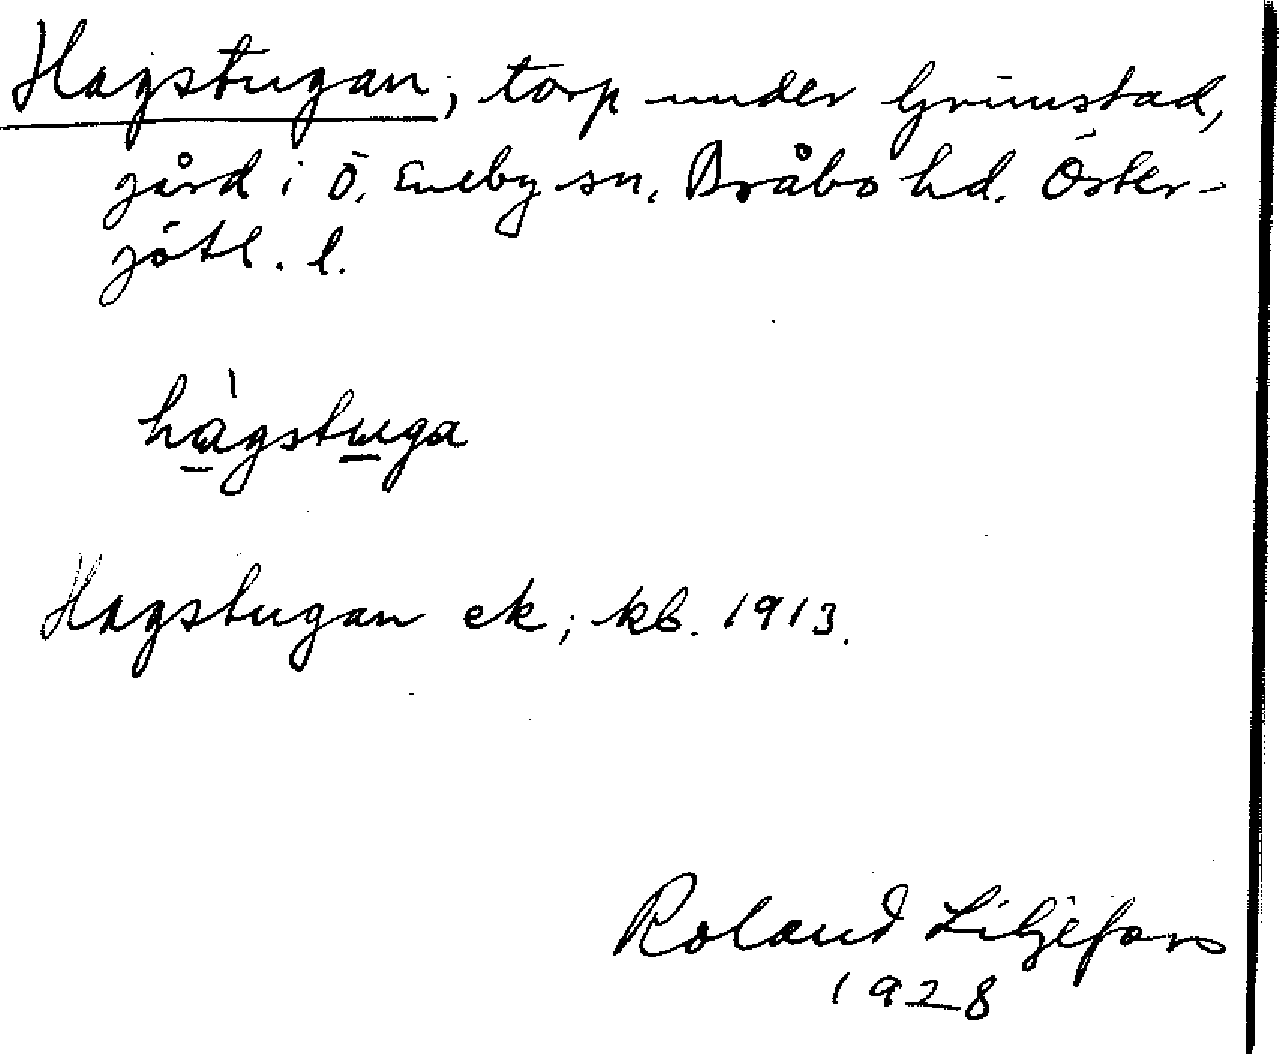 Hagstugan, torp under Grimstad,
gård i Ö. Eneby sn. Bråbo hd. Öster-
götl. l.
hàgstuga
Hagstugan ek; kb. 1913.
Roland Liljefors
1928